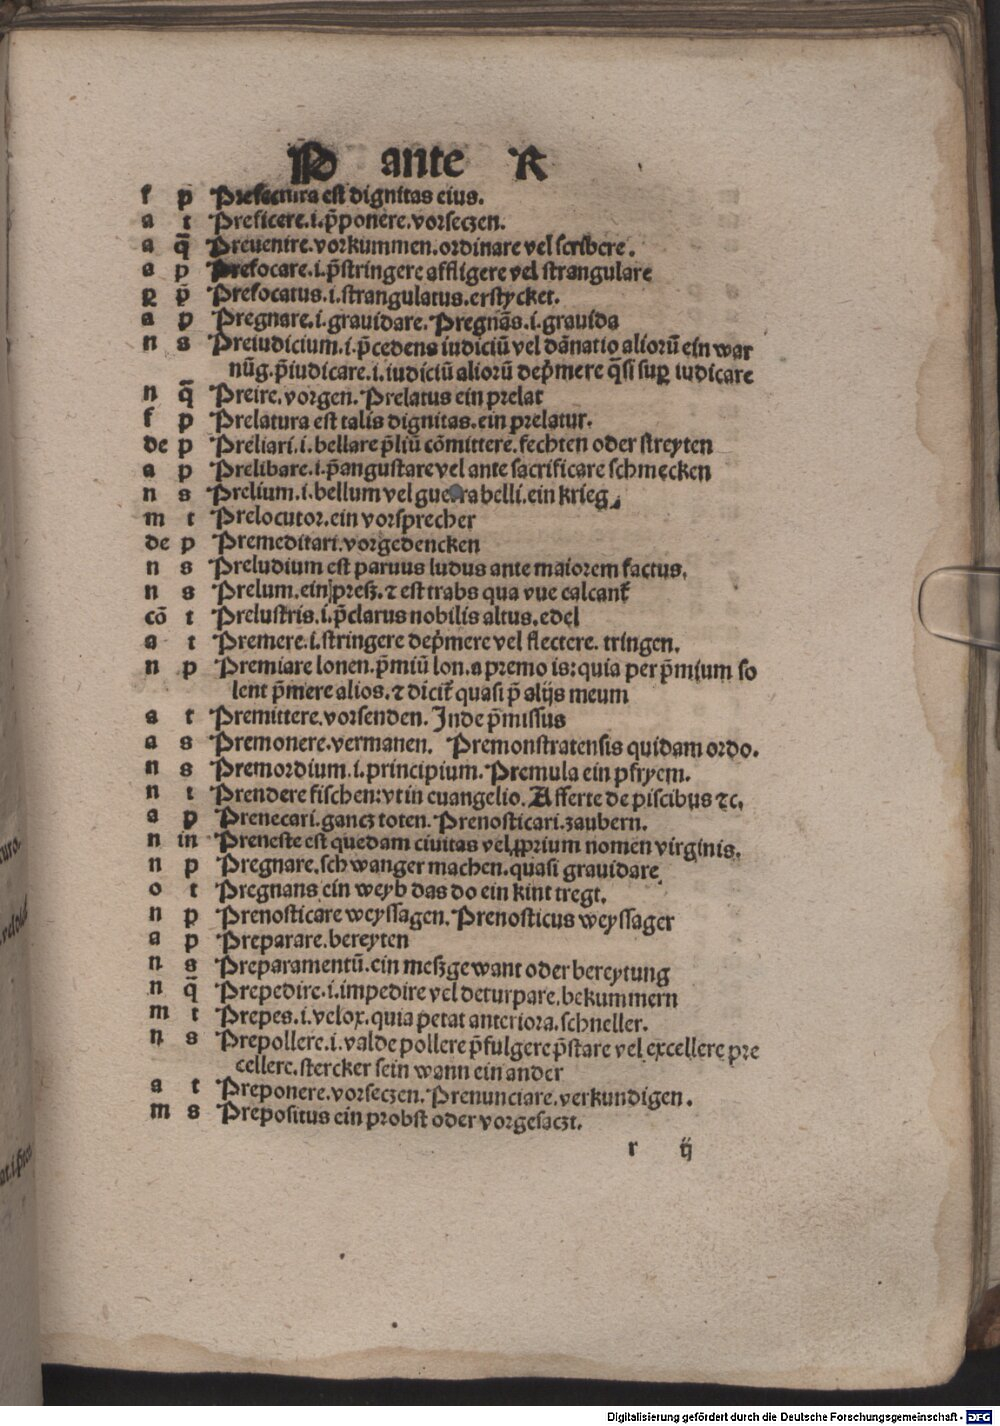 P ante R
f p Prefectura est dignitas eius.
a t Preficere.i.p̄ponere.vorseczen.
a q̄ Preuenire.vorkummen.ordinare vel scribere.
a p Prefocare.i.p̄stringere affligere vel strangulare
ꝑ p̄ Prefocatus.i.strangulatus.erstycket.
a p Pregnare.i.grauidare.Pregnās.i.grauida
n s Preiudicium.i.p̄cedens iudiciū vel dānatio aliorū ein war
nūg.p̄iudicare.i.iudiciū aliorū dep̄mere q̄si suꝑ iudicare
n q̄ Preire.vorgen.Prelatus ein prelat
f p Prelatura est talis dignitas.ein prelatur.
de p Preliari.i.bellare p̄liū cōmittere.fechten oder streyten
a p Prelibare.i.p̄angustare vel ante sacrificare schmecken
n s Prelium.i.bellum vel guerra belli.ein krieg.
m t Prelocutor.ein vorsprecher
de p Premeditari.vorgedencken
n s Preludium est paruus ludus ante maiorem factus.
n s Prelum.ein preß.⁊ est trabs qua vue calcant̄
cō t Prelustris.i.p̄clarus nobilis altus.edel
a t Premere.i.stringere dep̄mere vel flectere.tringen.
n p Premiare lonen.p̄miū lon.a premo is:quia per p̄mium so
lent p̄mere alios.⁊ dicit̄ quasi p̄ alijs meum
a t Premittere.vorsenden.Inde p̄missus
a s Premonere.vermanen. Premonstratensis quidam ordo.
n s Premordium.i.principium.Premula ein pfryem.
n t Prendere fischen:vt in euangelio.Afferte de piscibus ⁊c.
a p Prenecari.gancz toten.Prenosticari.zaubern.
n in Preneste est quedam ciuitas vel ꝓprium nomen virginis.
n p Pregnare.schwanger machen.quasi grauidare
o t Pregnans ein weyb das do ein kint tregt.
n p Prenosticare weyssagen.Prenosticus weyssager
a p Preparare.bereyten
n s Preparamentū.ein meßgewant oder bereytung
n q̄ Prepedire.i.impedire vel deturpare.bekummern
m t Prepes.i.velox.quia petat anteriora.schneller.
n s Prepollere.i.valde pollere p̄fulgere p̄stare vel excellere pre
cellere.stercker sein wann ein ander
a t Preponere.vorseczen.Prenunciare.verkundigen.
m s Prepositus ein probst oder vorgesaczt.
r ij
Digitalisierung gefördert durch die Deutsche Forschungsgemeinschaft - DFG